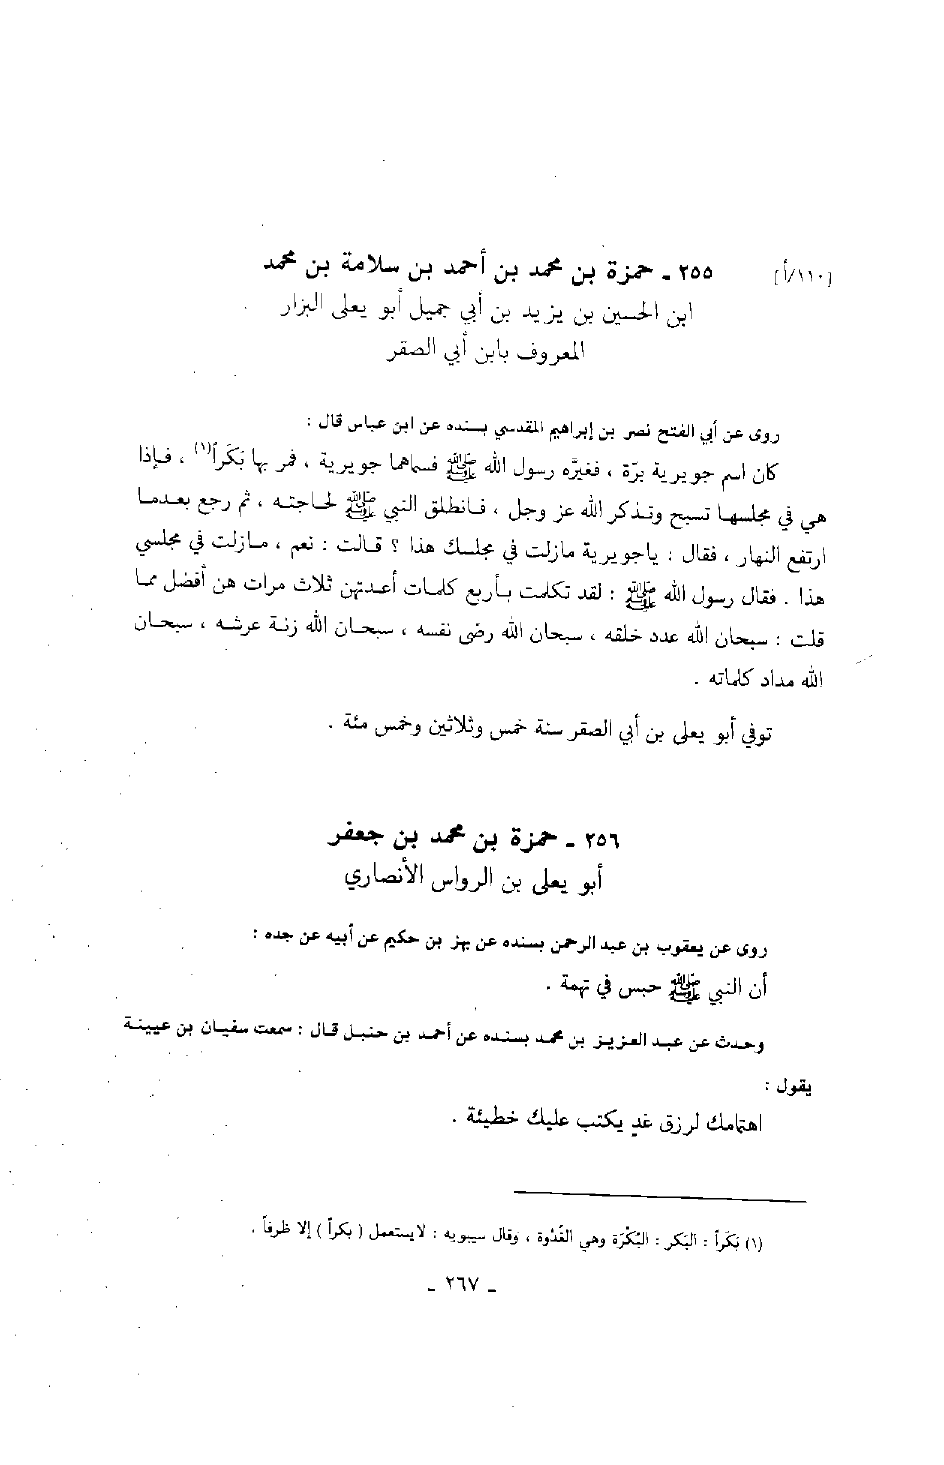 [١١٠/أ] ٢٥٥ ـ حمزة بن محمد بن أحمد بن سلامة بن محمد
ابن الحسين بن يزيد بن أبي جميل أبو يعلى البزار
المعروف بابن أبي الصقر
روى عن أبي الفتح نصر بن إبراهيم المقدسي بسنده عن ابن عباس قال :
كان اسم جويرية برّة ، فغيَّره رسول الله ﷺ فسماها جويرية ، فمر بها بَكَراً(١) ، فإذا
هي في مجلسها تسبح وتذكر الله عز وجل ، فانطلق النبي ﷺ لحاجته ، ثم رجع بعدما
ارتفع النهار ، فقال : ياجويرية مازلت في مجلسك هذا ؟ قالت : نعم ، مازلت في مجلسي
هذا . فقال رسول الله ﷺ : لقد تكلمت بأربع كلمات أعدتهن ثلاث مرات هن أفضل مما
قلت : سبحان الله عدد خلقه ، سبحان الله رضى نفسه ، سبحان الله زنة عرشه ، سبحان
الله مداد كلماته .
توفي أبو يعلى بن أبي الصقر سنة خمس وثلاثين وخمس مئة .
٢٥٦ ـ حمزة بن محمد بن جعفر
أبو يعلى بن الرواس الأنصاري
روى عن يعقوب بن عبد الرحمن بسنده عن بهز بن حكيم عن أبيه عن جده :
أن النبي ﷺ حبس في تهمة .
وحدث عن عبد العزيز بن محمد بسنده عن أحمد بن حنبل قال : سمعت سفيان بن عيينة
يقول :
اهتمامك لرزق غدٍ يكتب عليك خطيئة .
(١) بَكَراً : البَكَر : البُكْرَة وهي الغُدْوة ، وقال سيبويه : لايستعمل ( بكراً ) إلا ظرفاً .
ـ ٢٦٧ ـ